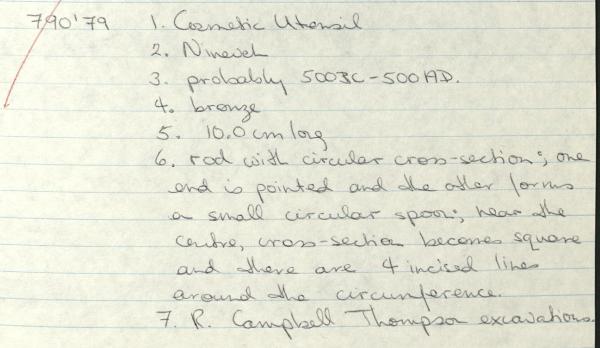 790'79 1. Cosmetic Utensil
2. Nineveh
3. probably 500BC-500AD.
4. bronze
5. 10.0cm long
6. rod with circular cross-section; one
end is pointed and the other forms
a small circular spoon; near the
centre, cross-section becomes square
and there are 4 incised lines
around the circumference.
7. R. Campbell Thompson excavations.